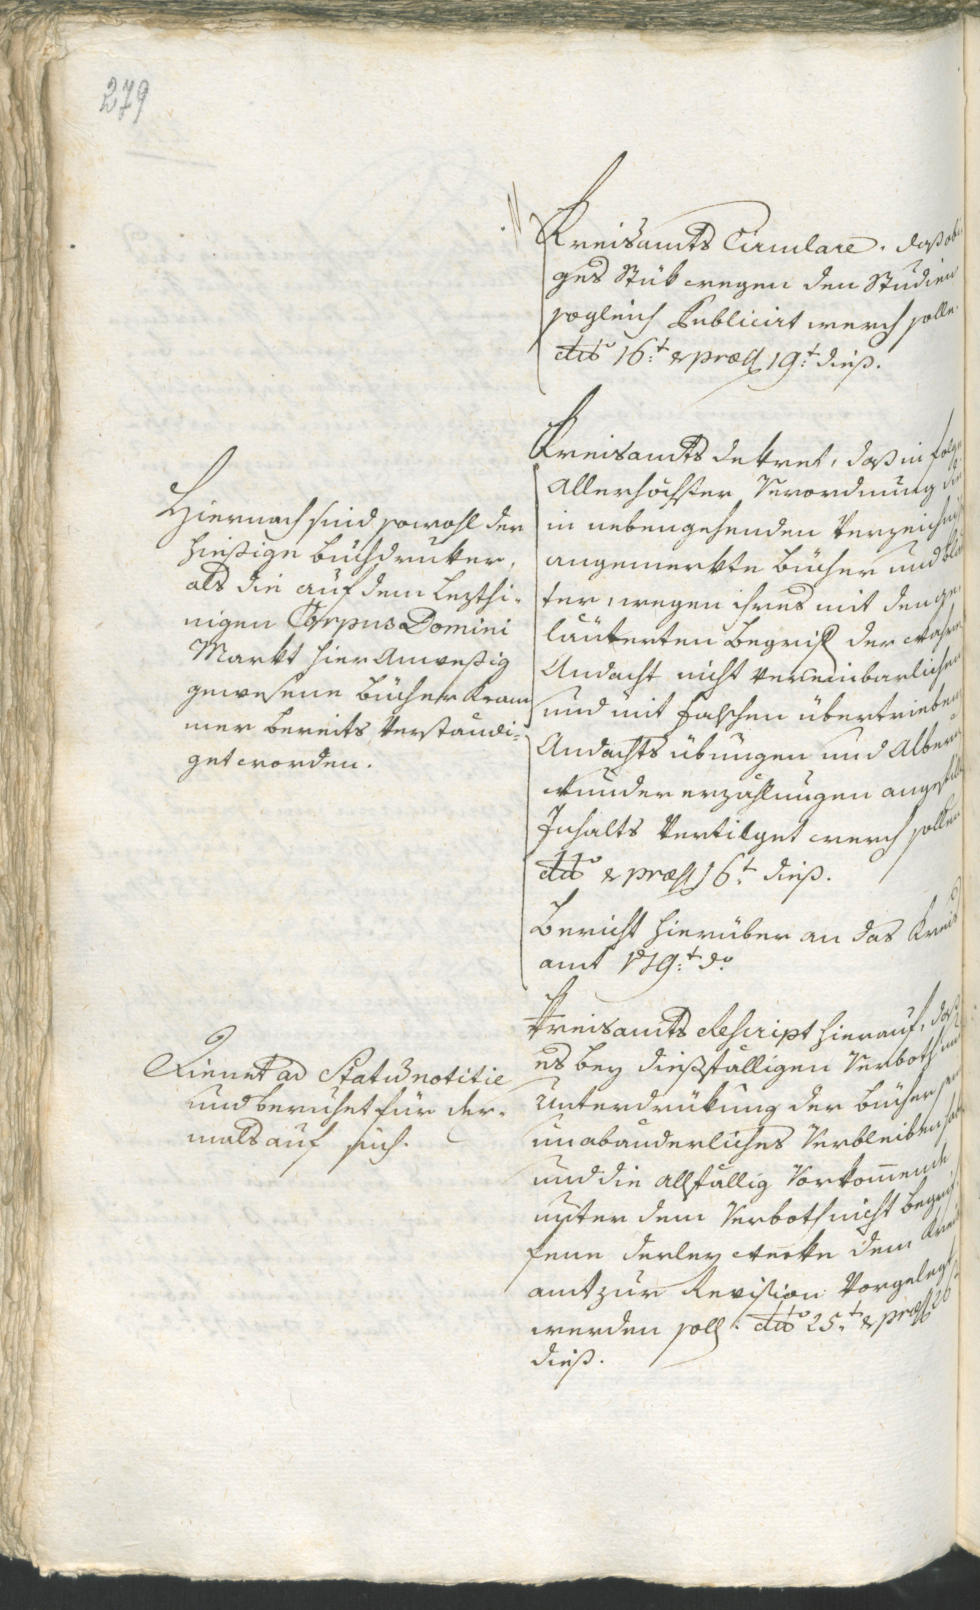 279
Kreisamts Circulare, daß obi
ges Stük wegen den Studien
sogleich Publicirt werdn solle.
dto 16t & præs 19t dieß.
Kreisamts dekret, daß in folge
Allerhöchster Verordnung die
in nebengehenden Verzeichniß
angemerkte Bücher und blä
ter, wegen ihres mit den ge
läuterten Begrif der wahren
Andacht nicht vereinbarlichen
und mit falschen übertriebenen
Andachts übungen und Albern
wunder erzählungen angefüll
Inhalts Vertilget werdn sollen
dto & præs 16t dieß.
Bericht hierüber an das Kreis
amt 19t do
Hiernach sind sowohl der
hießige buchdruker,
als die auf dem Lezthi-
nigen Corpus Domini
Markt hier Anweßig
gewesene bücher Kram
mer bereits Verständi-
get worden.
Kreisamts Rescript hierauf, daß
es bey dießfälligen Verboth und
Unterdrükung der bücher sein
unabänderliches Verbleiben habe
und die allfällig Vorkommende
unter dem Verboth nicht begrif
fene derley werke dem Kreis
amt zur Revision Vorgelegt
werden soll. dto 25t & præs 26
dieß.
Dienet ad Statum notitiæ
und beruhet für der-
mals auf sich.